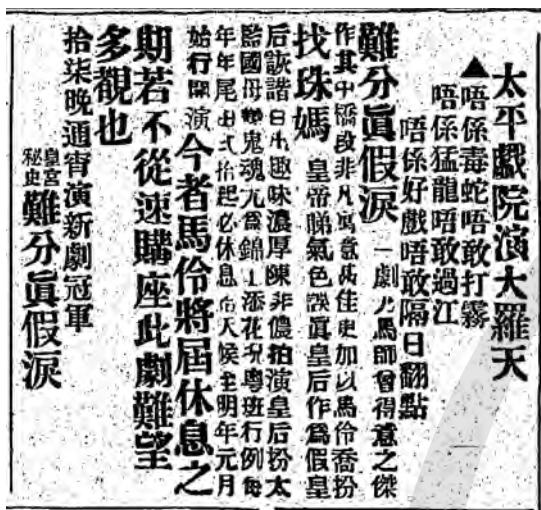 太平戲院演大羅天
▲唔係毒蛇唔敢打霧
唔係猛龍唔敢過江
唔係好戲唔敢隔日翻點
難分眞假淚 一劇 馬師曾得意之傑
作其中橋段非凡寓意甚佳更加以馬伶喬扮
找珠媽 皇帝睇氣色誤眞皇后作爲假皇
后詼諧百出趣味濃厚陳非儂拍演皇后扮太
監國母變鬼魂尤爲錦上添花況粵班行例每
年年尾由弍拾起必休息 人候至明年元月
始行開演 今者馬伶將屆休息之
期若不從速購座此劇難望
多觀也
拾柒晚通宵演新劇冠軍
皇宮
秘史
難分眞假淚